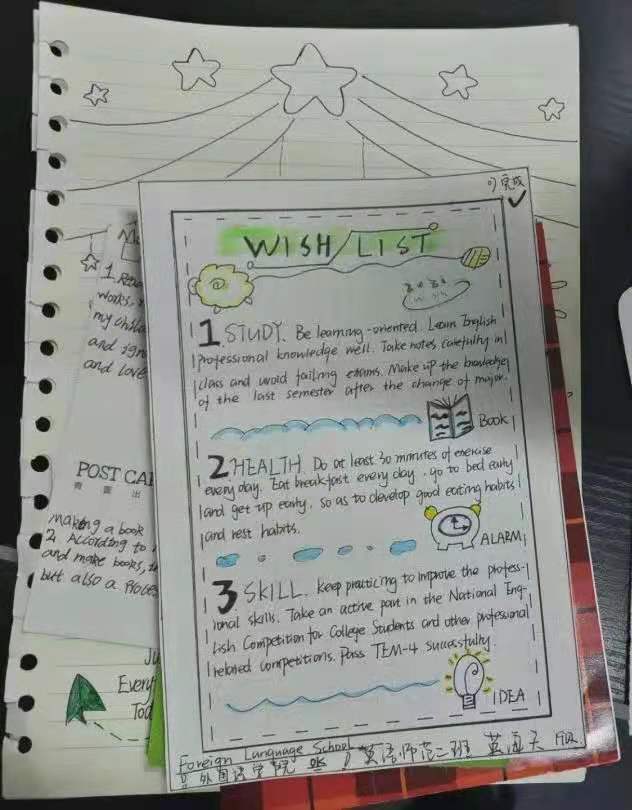 完成
WISH LIST
1 STUDY. Be learning-oriented. Learn English
professional knowledge well. Take notes carefully in
class and avoid failing exams. Make up the knowledge
of the last semester after the change of major.
Book
2 HEALTH. Do at least 30 minutes of exercise
every day. Eat breakfast every day. go to bed early
and get up early, so as to develop good eating habits
and rest habits.
ALARM
3 SKILL. keep practicing to improve the profess-
ional skills. Take an active part in the National Eng-
lish Competition for College Students and other professional
related competitions. Pass TEM-4 successfully.
IDEA
Foreign Language School
外国语学院 英语师范二班
1.
works,
my childh
and igno
and love
POST CA
Making a book
2. According to
and make books,
but also a proces
Every